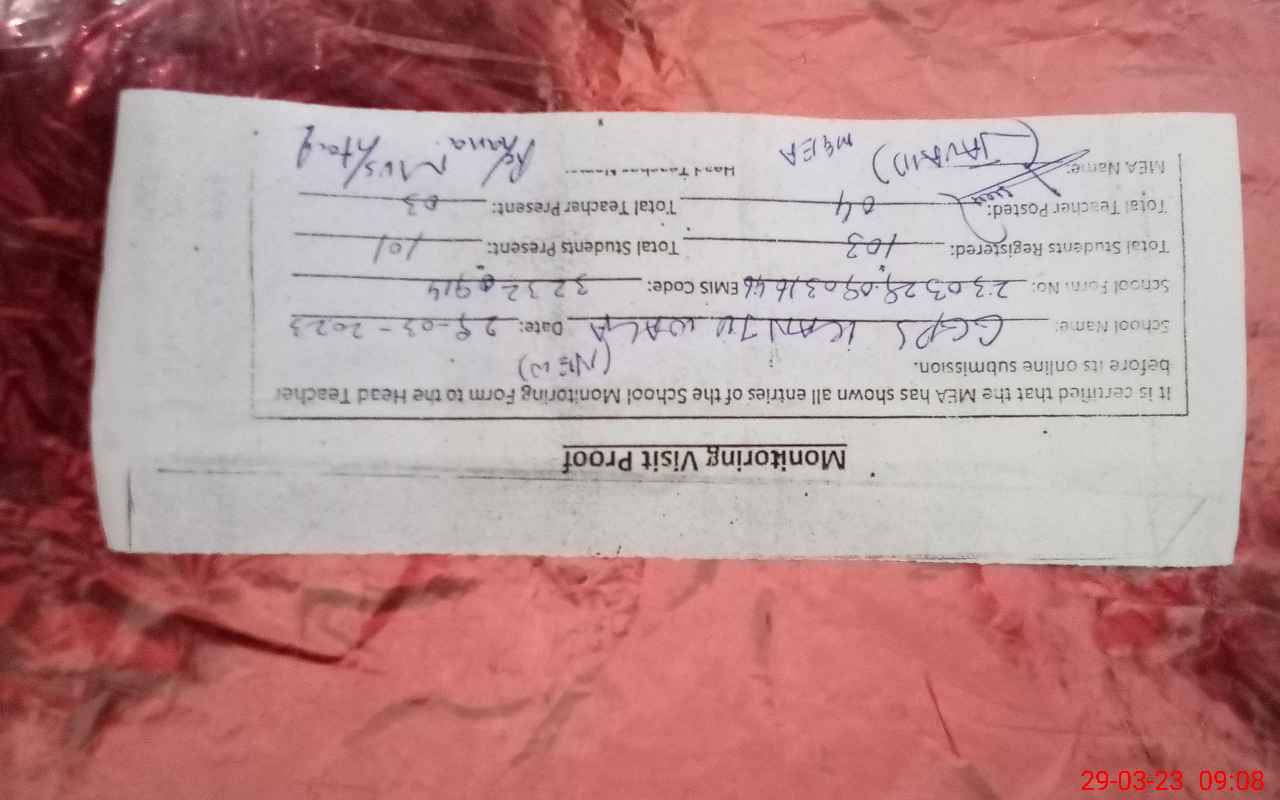 Monitoring Visit Proof
It is certified that the MEA has shown all entries of the School Monitoring Form to the Head Teacher
before its online submission. (NEW)
School Name: GGPS KANJU WALA Date: 29-03-2023
School Form No: EMIS Code:
Total Students Registered: 103 Total Students Present: 101
Total Teacher Posted: 04 Total Teacher Present: 03
MEA Name: (JAVAID) MEA Head Teacher Name: Mushtaq
29-03-23 09:08